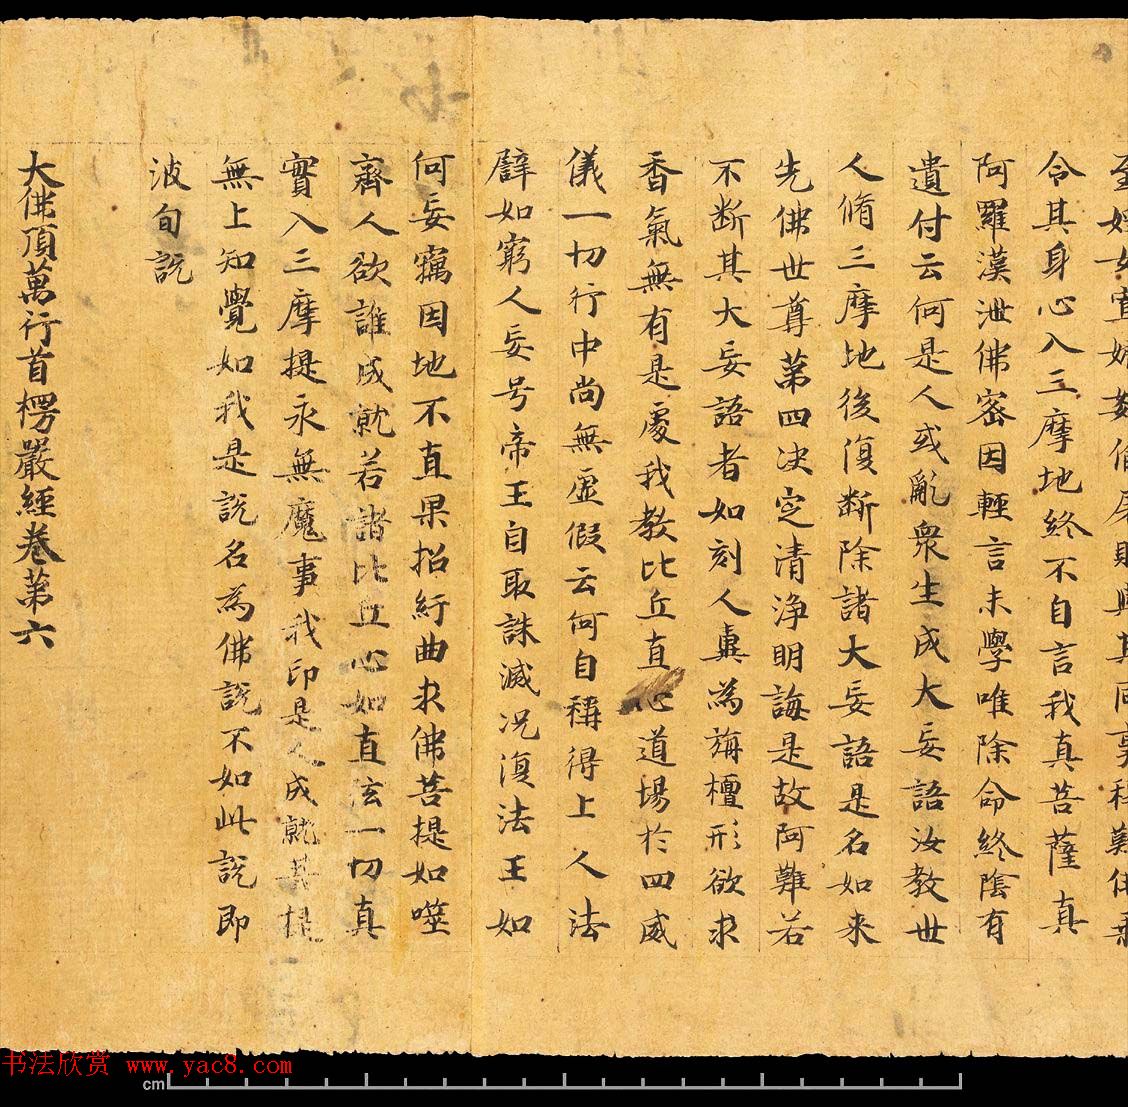 令其身心入三摩地終不自言我真菩薩真
阿羅漢泄佛密因輕言未學唯除命終陰有
遺付云何是人或亂衆生成大妄語汝教世
人脩三摩地後復断除諸大妄語是名如来
先佛世尊第四决定清浄明誨是故阿難若
不断其大妄語者如刻人糞為旃檀形欲求
香氣無有是處我教比丘直心道場扵四威
儀一切行中尚無虚假云何自稱得上人法
譬如窮人妄号帝王自取誅滅况復法王如
何妄竊因地不直果招紆曲求佛菩提如噬
齊人欲誰成就若諸比丘心如直弦一切真
實入三摩提永無魔事我印是人成就菩提
無上知覺如我是説名為佛説不如此説即
波旬説
大佛頂萬行首楞嚴經卷第六
书法欣赏 www.yac8.com
cm